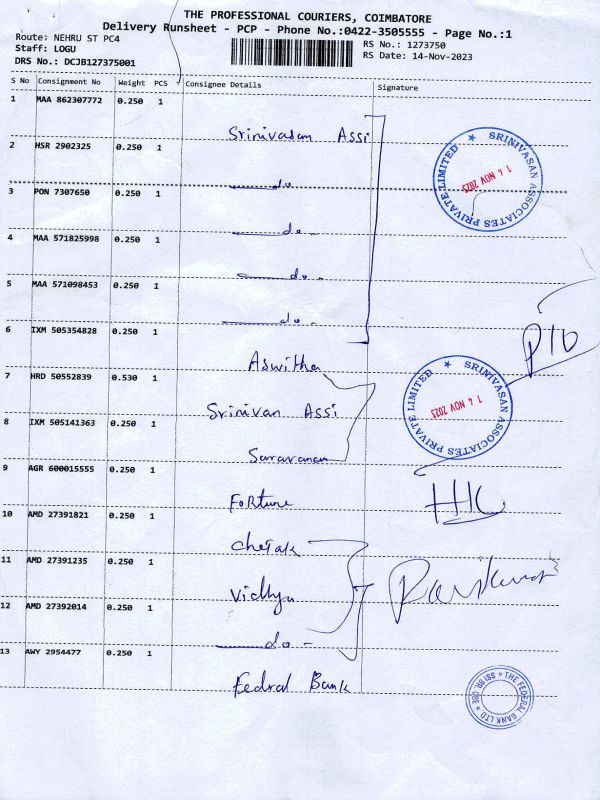 THE PROFESSIONAL COURIERS, COIMBATORE
Delivery Runsheet - PCP - Phone No.:0422-3505555 - Page No.:1
Route: NEHRU ST PC4
Staff: LOGU
DRS No.: DCJB127375001
RS No.: 1273750
RS Date: 14-Nov-2023
S No Consignment No Weight PCS Consignee Details Signature
1 MAA 862307772 0.250 1 Srinivasan Assi
2 HSR 2902325 0.250 1 do
3 PON 7307650 0.250 1 do -
4 MAA 571825998 0.250 1 do -
5 MAA 571098453 0.250 1 do -
6 IXM 505354828 0.250 1 Aswitha
7 HRD 50552839 0.530 1 Srinivan Assi
8 IXM 505141363 0.250 1 Saravanan
9 AGR 600015555 0.250 1 Fortune
10 AMD 27391821 0.250 1 Chetak
11 AMD 27391235 0.250 1 Vidhya
12 AMD 27392014 0.250 1 do -
13 AWY 2954477 0.250 1 Fedral Bank
SRINIVASAN ASSOCIATES PRIVATE LIMITED
14 NOV 2023
SRINIVASAN ASSOCIATES PRIVATE LIMITED
14 NOV 2023
THE FEDERAL BANK LTD